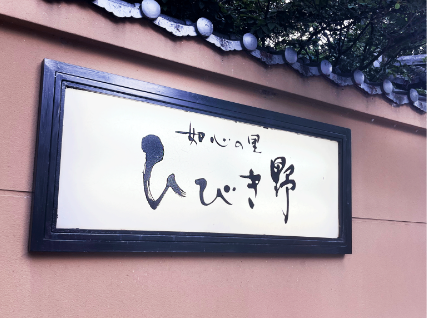 如心の里
ひびき野